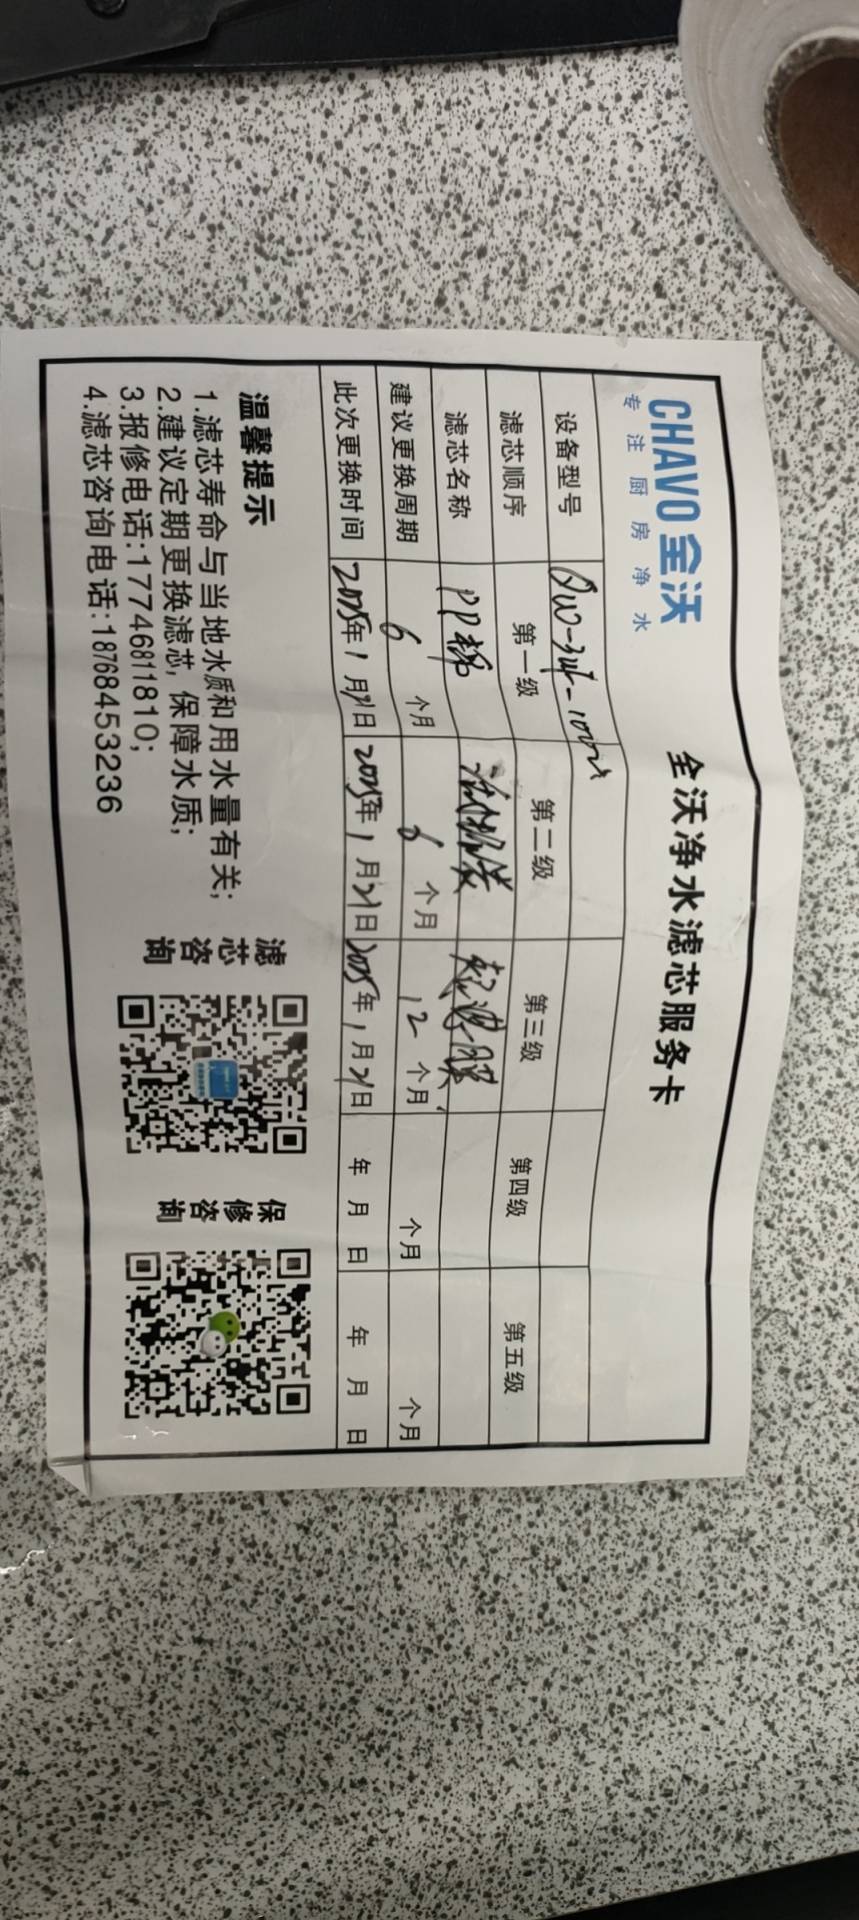 CHAVO 全沃
专注厨房净水
全沃净水滤芯服务卡
设备型号
滤芯顺序 第一级 第二级 第三级 第四级 第五级
滤芯名称 PP棉 超滤膜
建议更换周期 6 个月 6 个月 12 个月 个月 个月
此次更换时间 2025年1月21日 2025年1月21日 2025年1月21日 年 月 日 年 月 日
温馨提示
1.滤芯寿命与当地水质和用水量有关;
2.建议定期更换滤芯,保障水质;
3.报修电话:17746811810;
4.滤芯咨询电话:18768453236
滤芯咨询
保修咨询